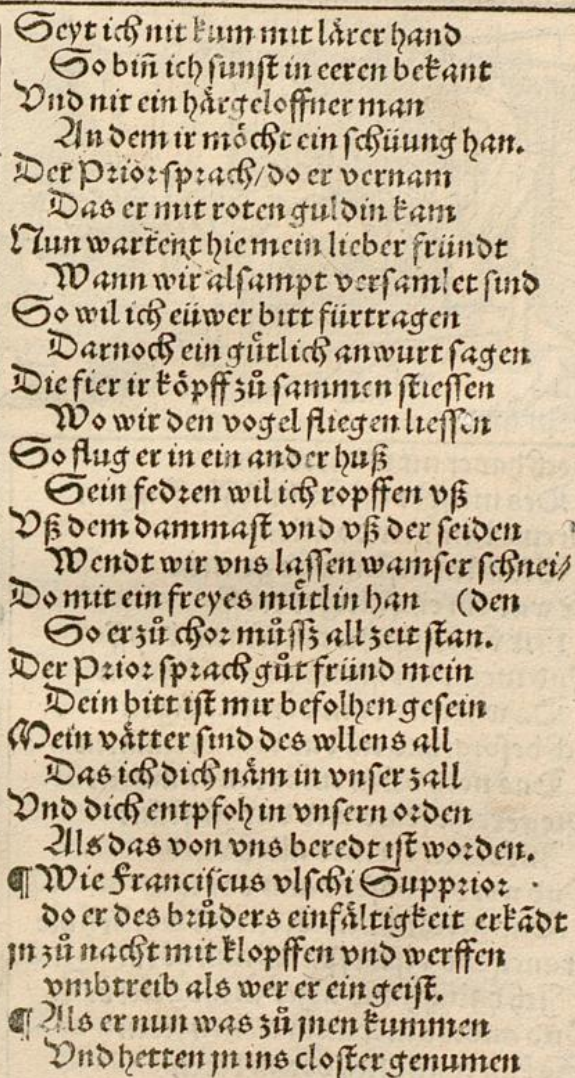 Seyt ich nit kum mit lärer hand
So biñ ich sunst in eeren bekant
Vnd nit ein härgeloffner man
An dem ir möcht ein schüung han.
Der Prior sprach/do er vernam
Das er mit roten guldin kam
Nun wartent hie mein lieber fründt
Wann wir alsampt versamlet sind
So wil ich eüwer bitt fürtragen
Darnoch ein gütlich anwurt sagen
Die fier ir köpff zů sammen stiessen
Wo wir den vogel fliegen liessen
So flug er in ein ander huß
Sein fedren wil ich ropffen vß
Vß dem dammast vnd vß der seiden
Wendt wir vns lassen wamser schnei/
Do mit ein freyes mütlin han (den
So er zů chor můssz all zeit stan.
Der Prior sprach gůt fründ mein
Dein bitt ist mir befolhen gesein
Mein vätter sind des wllens all
Das ich dich näm in vnser zall
Vnd dich entpfoh in vnsern orden
Als das von vns beredt ist worden.
¶ Wie Franciscus vlschi Supprior
do er des brůders einfältigkeit erkādt
jn zů nacht mit klopffen vnd werffen
vmbtreib als wer er ein geist.
¶ Als er nun was zů jnen kummen
Vnd hetten jn ins closter genumen